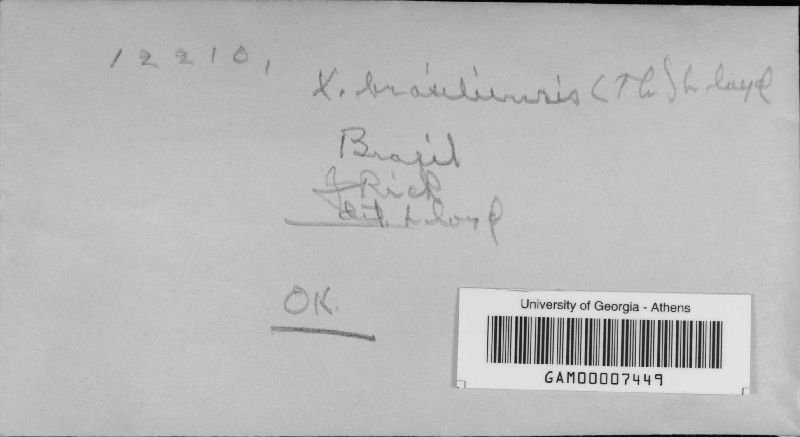 12210,
X. brasiliensis (Th) Lloyd
Brazil
J Rick
det. Lloyd
OK.
University of Georgia - Athens
GAM00007449